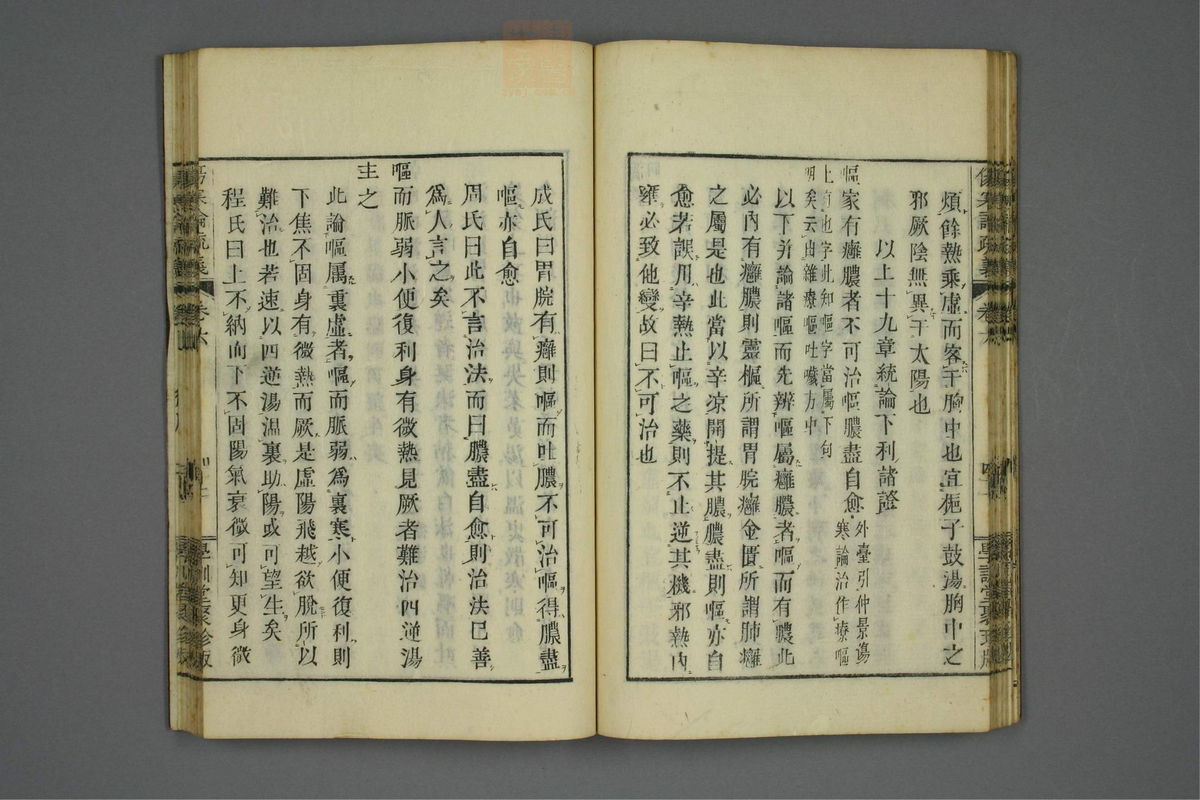 煩餘熱乘虛而客于胸中也宜梔子鼓湯胸中之
邪厥陰無異于太陽也
以上十九章統論下利諸證
嘔家有癰膿者不可治嘔膿盡自愈
外臺引仲景傷
寒論治作療嘔
上有也字此知嘔字當屬下句
明矣云由雜療嘔吐噦方中
以下并論諸嘔而先辨嘔屬癰膿者嘔而有膿此
必內有癰膿則靈樞所謂胃脘癰金匱所謂肺癰
之屬是也此當以辛凉開提其膿膿盡則嘔亦自
愈若誤用辛熱止嘔之藥則不止逆其機邪熱內
壅必致他變故曰不可治也
成氏曰胃脘有癰則嘔而吐膿不可治嘔得膿盡
嘔亦自愈
周氏曰此不言治法而曰膿盡自愈則治法已善
爲人言之矣
嘔而脈弱小便復利身有微熱見厥者難治四逆湯
主之
此論嘔屬裏虛者嘔而脈弱爲裏寒小便復利則
下焦不固身有微熱而厥是虛陽飛越欲脫所以
難治也若速以四逆湯溫裏助陽或可望生矣
程氏曰上不納而下不固陽氣衰微可知更身微
傷寒論疏義
卷六
學訓堂聚珍版